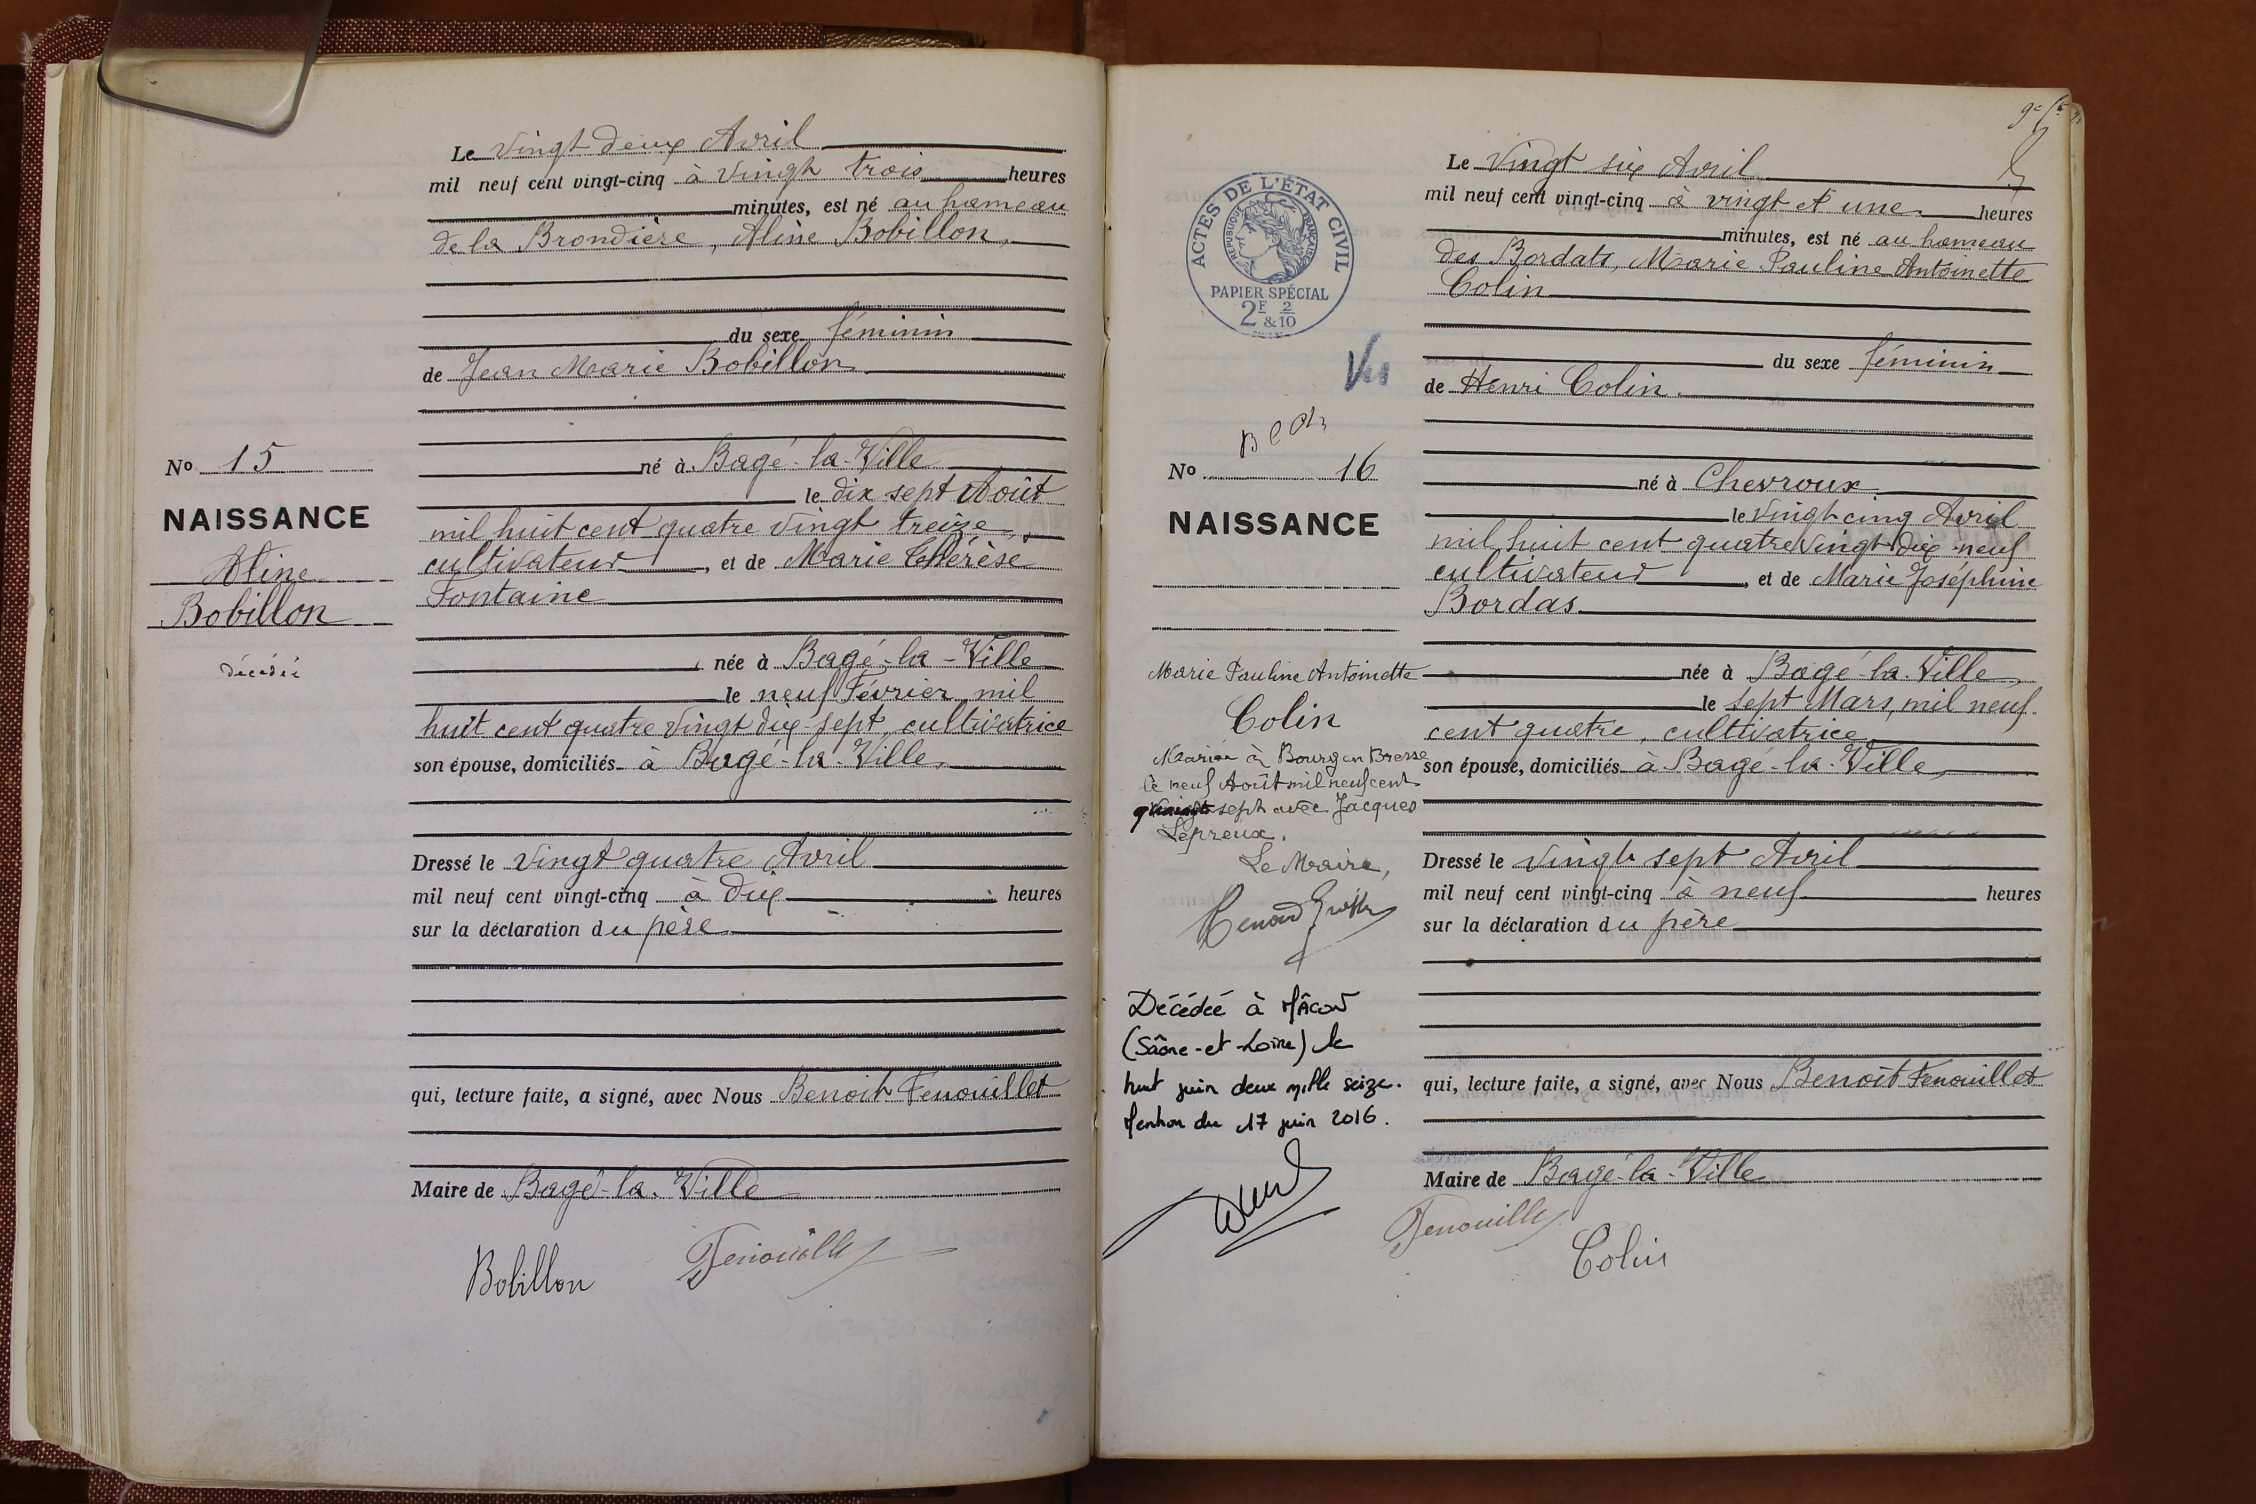 Le vingt deux Avril
mil neuf cent vingt-cinq à vingt trois heures
minutes, est né au hameau
de la Brondière, Aline Bobillon,
du sexe féminin
de Jean Marie Bobillon
né à Bagé-la-Ville
le dix sept Août
mil huit cent quatre vingt treize,
cultivateur, et de Marie Thérèse
Fontaine
née à Bagé-la-Ville
le neuf Février mil
huit cent quatre vingt dix sept, cultivatrice
son épouse, domiciliés à Bagé-la-Ville,
Dressé le vingt quatre Avril
mil neuf cent vingt-cinq à dix heures
sur la déclaration du père
qui, lecture faite, a signé, avec Nous Benoit Fenouillet
Maire de Bagé-la-Ville
Bobillon
No 15
NAISSANCE
Aline
Bobillon
décédée
Le vingt six Avril
mil neuf cent vingt-cinq à vingt et une heures
minutes, est né au hameau
des Bordats, Marie Pauline Antoinette
Colin
du sexe féminin
de Henri Colin
né à Chevroux
le vingt cinq Avril
mil huit cent quatre vingt dix neuf
cultivateur, et de Marie Joséphine
Bordas
née à Bagé-la-Ville,
le sept Mars, mil neuf
cent quatre, cultivatrice,
son épouse, domiciliés à Bagé-la-Ville,
Dressé le vingt sept Avril
mil neuf cent vingt-cinq à neuf heures
sur la déclaration du père
qui, lecture faite, a signé, avec Nous Benoit Fenouillet
Maire de Bagé-la-Ville
Colin
ACTES DE L'ÉTAT CIVIL
RÉPUBLIQUE FRANÇAISE
PAPIER SPÉCIAL
2F & 2/10
Vu
No 16
NAISSANCE
Marie Pauline Antoinette
Colin
Mariée à Bourg en Bresse
le neuf Août mil neuf cent
sept avec Jacques
Lepreux.
Le Maire,
Décédée à Mâcon
(Saône-et-Loire) le
huit juin deux mille seize.
Mention du 17 juin 2016.